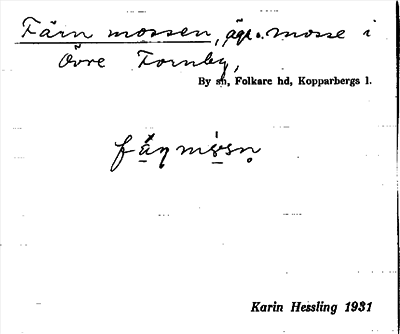 Färn mossen, äga. mosse i
Övre Fornby,
By sn, Folkare hd, Kopparbergs l.
Karin Hessling 1931